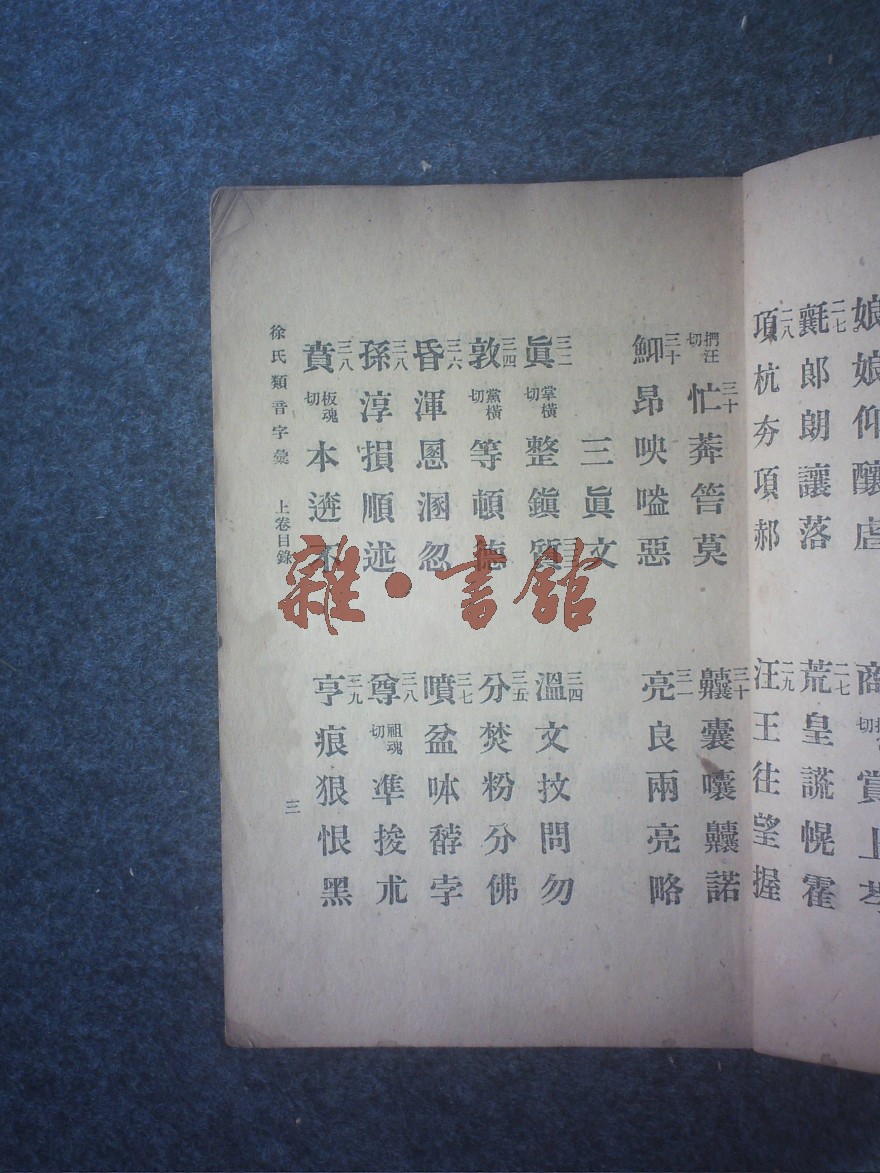 娘娘仰釀虐
二七
商賞上
二七
二七
氈郎朗讓落
荒皇謊幌霍
二七
二八
項杭夯項郝
汪王往望握
二九
捫汪切
忙莽筤莫
三十
囊囔諾
三十
三十
昂映嗌惡
亮良兩亮略
三一
三眞文
眞掌橫切整鎭質
三二
溫文抆問勿
三四
敦黨橫切等頓德
三四
分焚粉分佛
三五
昏渾慁溷忽
三六
噴盆呠馞孛
三七
孫淳損順述
三八
尊祖魂切準捘朮
三八
賁板魂切本遾不
三八
亨痕狠恨黑
三九
徐氏類音字彙 上卷目錄
三
雜·書館